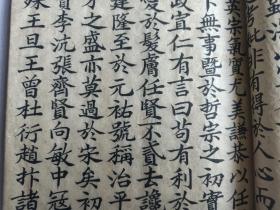 此非有得於人心而
英宗氣質尤美謙恭以任
下無事暨於哲宗之初實
政宣仁有言曰苟有利於
愛於髮膚任賢不貳去讒
建隆至於元祐號稱治平
才之盛亦莫過於宋矣初
李沆張齊賢向敏中寇
殊王旦王曾杜衍趙抃諸